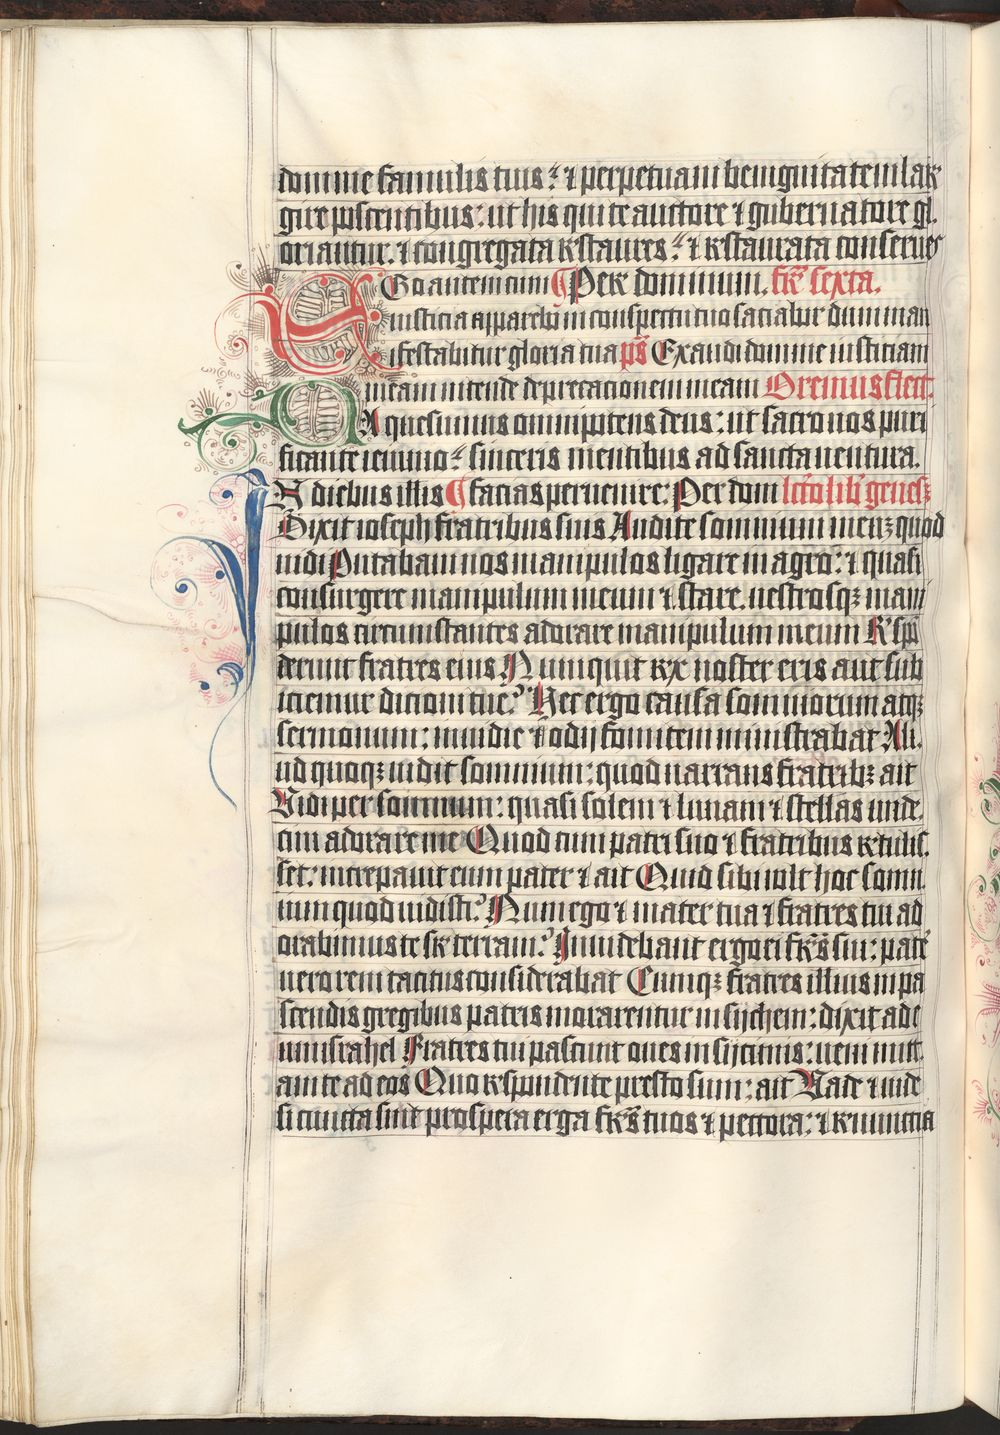 domine famulis tuis: ⁊ perpetuam benignitatem lar
gire poscentibus: ut his qui te auctore ⁊ gubernatore gl
oriantur. ⁊ congregata restaures: ⁊ restaurata conserues
EGo autem cum Per dominum. fer sexta.
iusticia apparebo in conspectu tuo satiabor dum man
ifestabitur gloria tua ps Exaudi domine iusticiam
meam intende deprecationem meam Oremus flect.
DA quesumus omnipotens deus: ut sacro nos puri
ficante ieiunio: sinceris mentibus ad sancta uentura.
IN diebus illis facias peruenire: Per dom lcto lib genes
Dixit ioseph fratribus suis Audite somnium meuz quod
uidi Putabam nos manipulos ligare in agro: ⁊ quasi
consurgere manipulum meum ⁊ stare. uestrosqz mani
pulos circumstantes adorare manipulum meum Rspon
derunt fratres eius Numquit rex noster eris aut sub
iciemur dicioni tue? Hec ergo causa somniorum atqz
sermonum: inuidie ⁊ odij fomitem ministrabat Ali
ud quoqz uidit somnium: quod narrans fratribz ait
Uidi per somnium: quasi solem ⁊ lunam ⁊ stellas unde.
cim adorare me Quod cum patri suo ⁊ fratribus retulis.
set: increpauit eum pater ⁊ ait Quid sibi uolt hoc somn.
ium quod uidisti? Num ego ⁊ mater tua ⁊ fratres tui ad
orabimus te sr terram? Inuidebant ergo ei frs sui: pater
uero rem tacitus considerabat Cumqz fratres illius in pa
scendis gregibus patris morarentur in sijchem: dixit ad e
um israhel Fratres tui pascunt oues in sijcimis: ueni mitt.
am te ad eos Quo respondente presto sum: ait Uade ⁊ uide
si cuncta sint prospera erga frs tuos ⁊ peccora: ⁊ renuncia